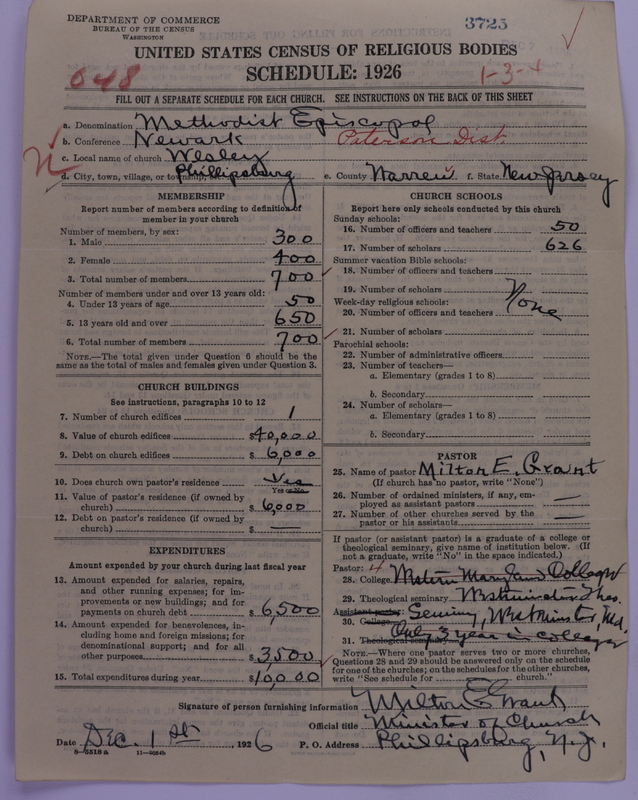 DEPARTMENT OF COMMERCE
BUREAU OF THE CENSUS
WASHINGTON
3725
UNITED STATES CENSUS OF RELIGIOUS BODIES
SCHEDULE: 1926
048
1-3-4
FILL OUT A SEPARATE SCHEDULE FOR EACH CHURCH. SEE INSTRUCTIONS ON THE BACK OF THIS SHEET
a. Denomination Methodist Episcopal
b. Conference Newark Paterson Dist.
c. Local name of church Wesley
d. City, town, village, or township, Phillipsburg e. County Warren f. State New Jersey
MEMBERSHIP
Report number of members according to definition of
member in your church
Number of members, by sex:
1. Male 300
2. Female 400
3. Total number of members 700
Number of members under and over 13 years old:
4. Under 13 years of age 50
5. 13 years old and over 650
6. Total number of members 700
NOTE.—The total given under Question 6 should be
same as the total of males and females given under Question 3.
CHURCH BUILDINGS
See instructions, paragraphs 10 to 12
7. Number of church edifices 1
8. Value of church edifices $40,000
9. Debt on church edifices $ 6,000
10. Does church own pastor's residence Yes
Yes or No
11. Value of pastor's residence (if owned by
church) $ 6,000
12. Debt on pastor's residence (if owned by
church) $ —
EXPENDITURES
Amount expended by your church during last fiscal year
13. Amount expended for salaries, repairs,
and other running expenses; for im-
provements or new buildings; and for
payments on church debt $ 6,500
14. Amount expended for benevolences, in-
cluding home and foreign missions; for
denominational support; and for all
other purposes $ 3500
15. Total expenditures during year $10,000
CHURCH SCHOOLS
Report here only schools conducted by this church
Sunday schools:
16. Number of officers and teachers 50
17. Number of scholars 626
Summer vacation Bible schools:
18. Number of officers and teachers
19. Number of scholars
None
Week-day religious schools:
20. Number of officers and teachers
21. Number of scholars
Parochial schools:
22. Number of administrative officers
23. Number of teachers—
a. Elementary (grades 1 to 8)
b. Secondary
24. Number of scholars—
a. Elementary (grades 1 to 8)
b. Secondary
PASTOR
25. Name of pastor Milton E. Grant
(If church has no pastor, write "None")
26. Number of ordained ministers, if any, em-
ployed as assistant pastors —
27. Number of other churches served by the
pastor or his assistants —
If pastor (or assistant pastor) is a graduate of a college or
theological seminary, give name of institution below. (If
not a graduate, write "No" in the space indicated.)
Pastor: 4
28. College Western Maryland College
29. Theological seminary Westminster Theo.
Assistant pastor: Seminy, Westminster, Md.
30. College
Only 3 year in college
31. Theological seminary
NOTE.—Where one pastor serves two or more churches,
Questions 28 and 29 should be answered only on the schedule
for one of the churches; on the schedules for the other churches,
write "See schedule for church."
Signature of person furnishing information Milton E Grant
Official title Minister of Church
Date Dec. 1st, 1926 P. O. Address Phillipsburg, N.J.
8—5518 a